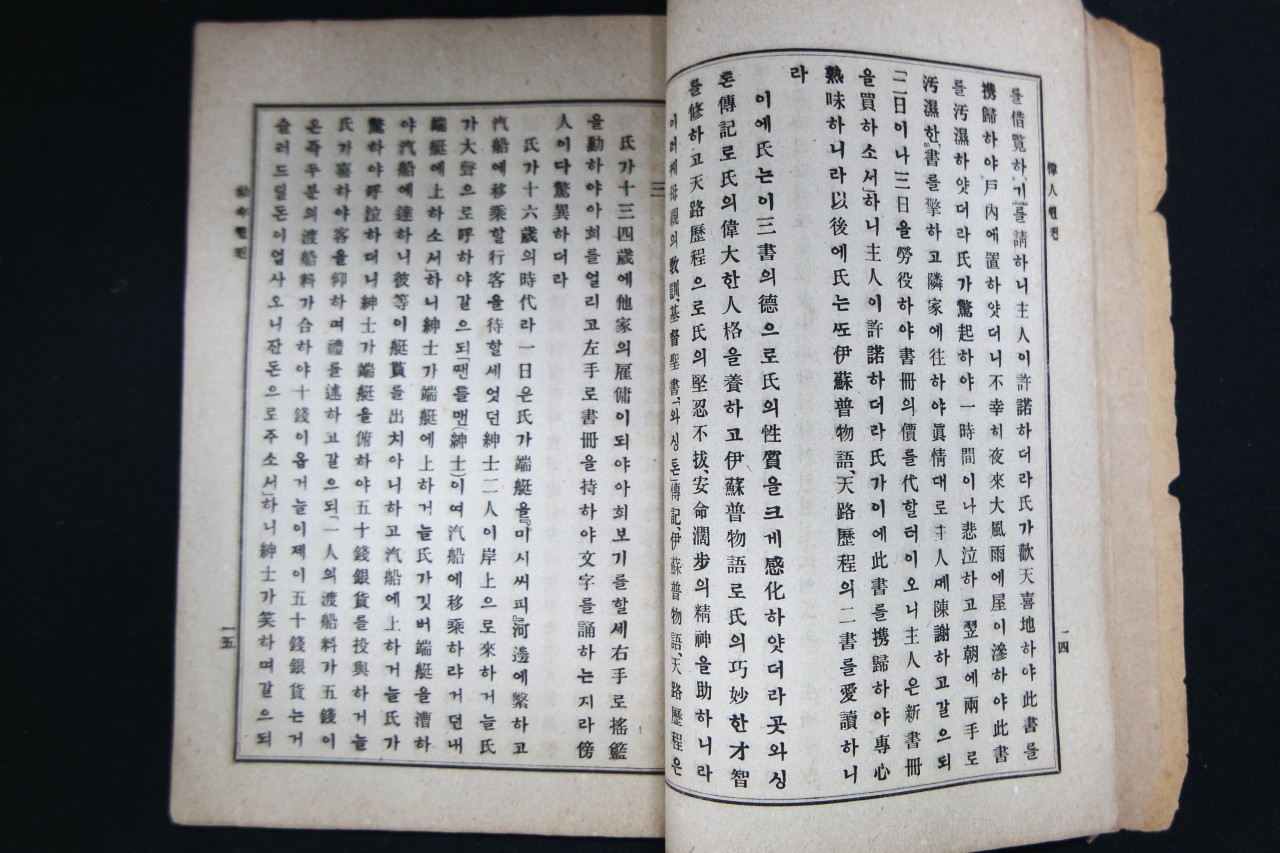 偉人린컨
一四
를借覽하기를請하니主人이許諾하더라氏가歡天喜地하야此書를
携歸하야戶內에置하얏더니不幸히夜來大風雨에屋이滲하야此書
를汚濕하얏더라氏가驚起하야一時間이나悲泣하고翌朝에兩手로
汚濕한書를擎하고隣家에往하야眞情대로主人께陳謝하고갈으되
「二日이나三日을勞役하야書冊의價를代할터이오니主人은新書冊
을買하소서」하니主人이許諾하더라氏가이에此書를携歸하야專心
熟味하니라以後에氏는또伊蘇普物語、天路歷程의二書를愛讀하니
라
이에氏는이三書의德으로氏의性質을크게感化하얏더라곳와싱
톤傳記로氏의偉大한人格을養하고伊蘇普物語로氏의巧妙한才智
를修하고天路歷程으로氏의堅忍不拔、安命濶步의精神을助하니라
이러케母親의敎訓、基督聖書、「와싱톤」傳記、伊蘇普物語、天路歷程은
三
氏가十三四歲에他家의雇傭이되야아희보기를할세右手로搖籃
을動하야아희를얼리고左手로書冊을持하야文字를誦하는지라傍
人이다驚異하더라
氏가十六歲의時代라一日은氏가端艇을『미시씨피』河邊에繫하고
汽船에移乘할行客을待할세엇던紳士二人이岸上으로來하거늘氏
가大聲으로呼하야갈으되「땐틀맨(紳士)이여汽船에移乘하랴거던내
端艇에上하소서」하니紳士가端艇에上하거늘氏가깃버端艇을漕하
야汽船에達하니彼等이艇貰를出치아니하고汽船에上하거늘氏가
驚하야呼泣하더니紳士가端艇을俯하야五十錢銀貨를投與하거늘
氏가喜하야客을仰하며禮를述하고갈으되「一人의渡船料가五錢이
온즉두분의渡船料가合하야十錢이옵거늘이제이五十錢銀貨는거
슬러드릴돈이업사오니잔돈으로주소서」하니紳士가笑하며갈으되
一五